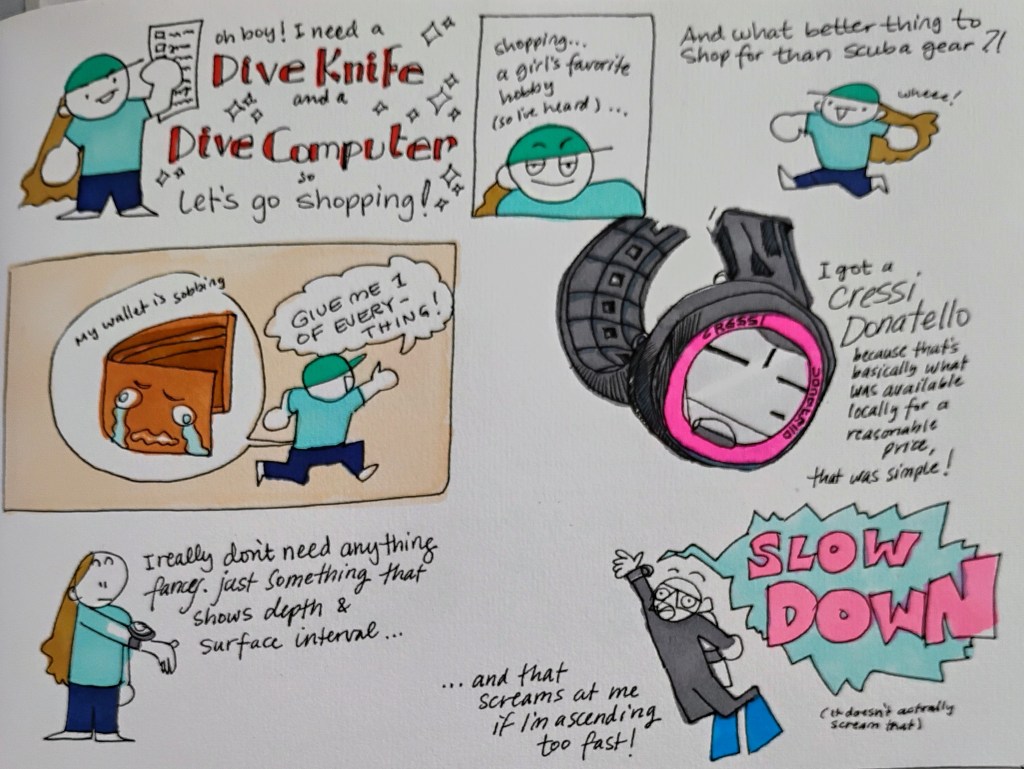 oh boy! I need a
Dive Knife
and a
Dive Computer
so
Let's go shopping!
shopping...
a girl's favorite
hobby
(so I've heard)...
And what better thing to
shop for than scuba gear?!
wheee!
My wallet is sobbing
GIVE ME 1
OF EVERY-
THING!
I got a
Cressi
Donatello
because that's
basically what
was available
locally for a
reasonable
price,
that was simple!
CRESSI
DONATELLO
I really don't need anything
fancy. just something that
shows depth &
surface interval...
...and that
screams at me
if I'm ascending
too fast!
SLOW
DOWN
(it doesn't actually
scream that)